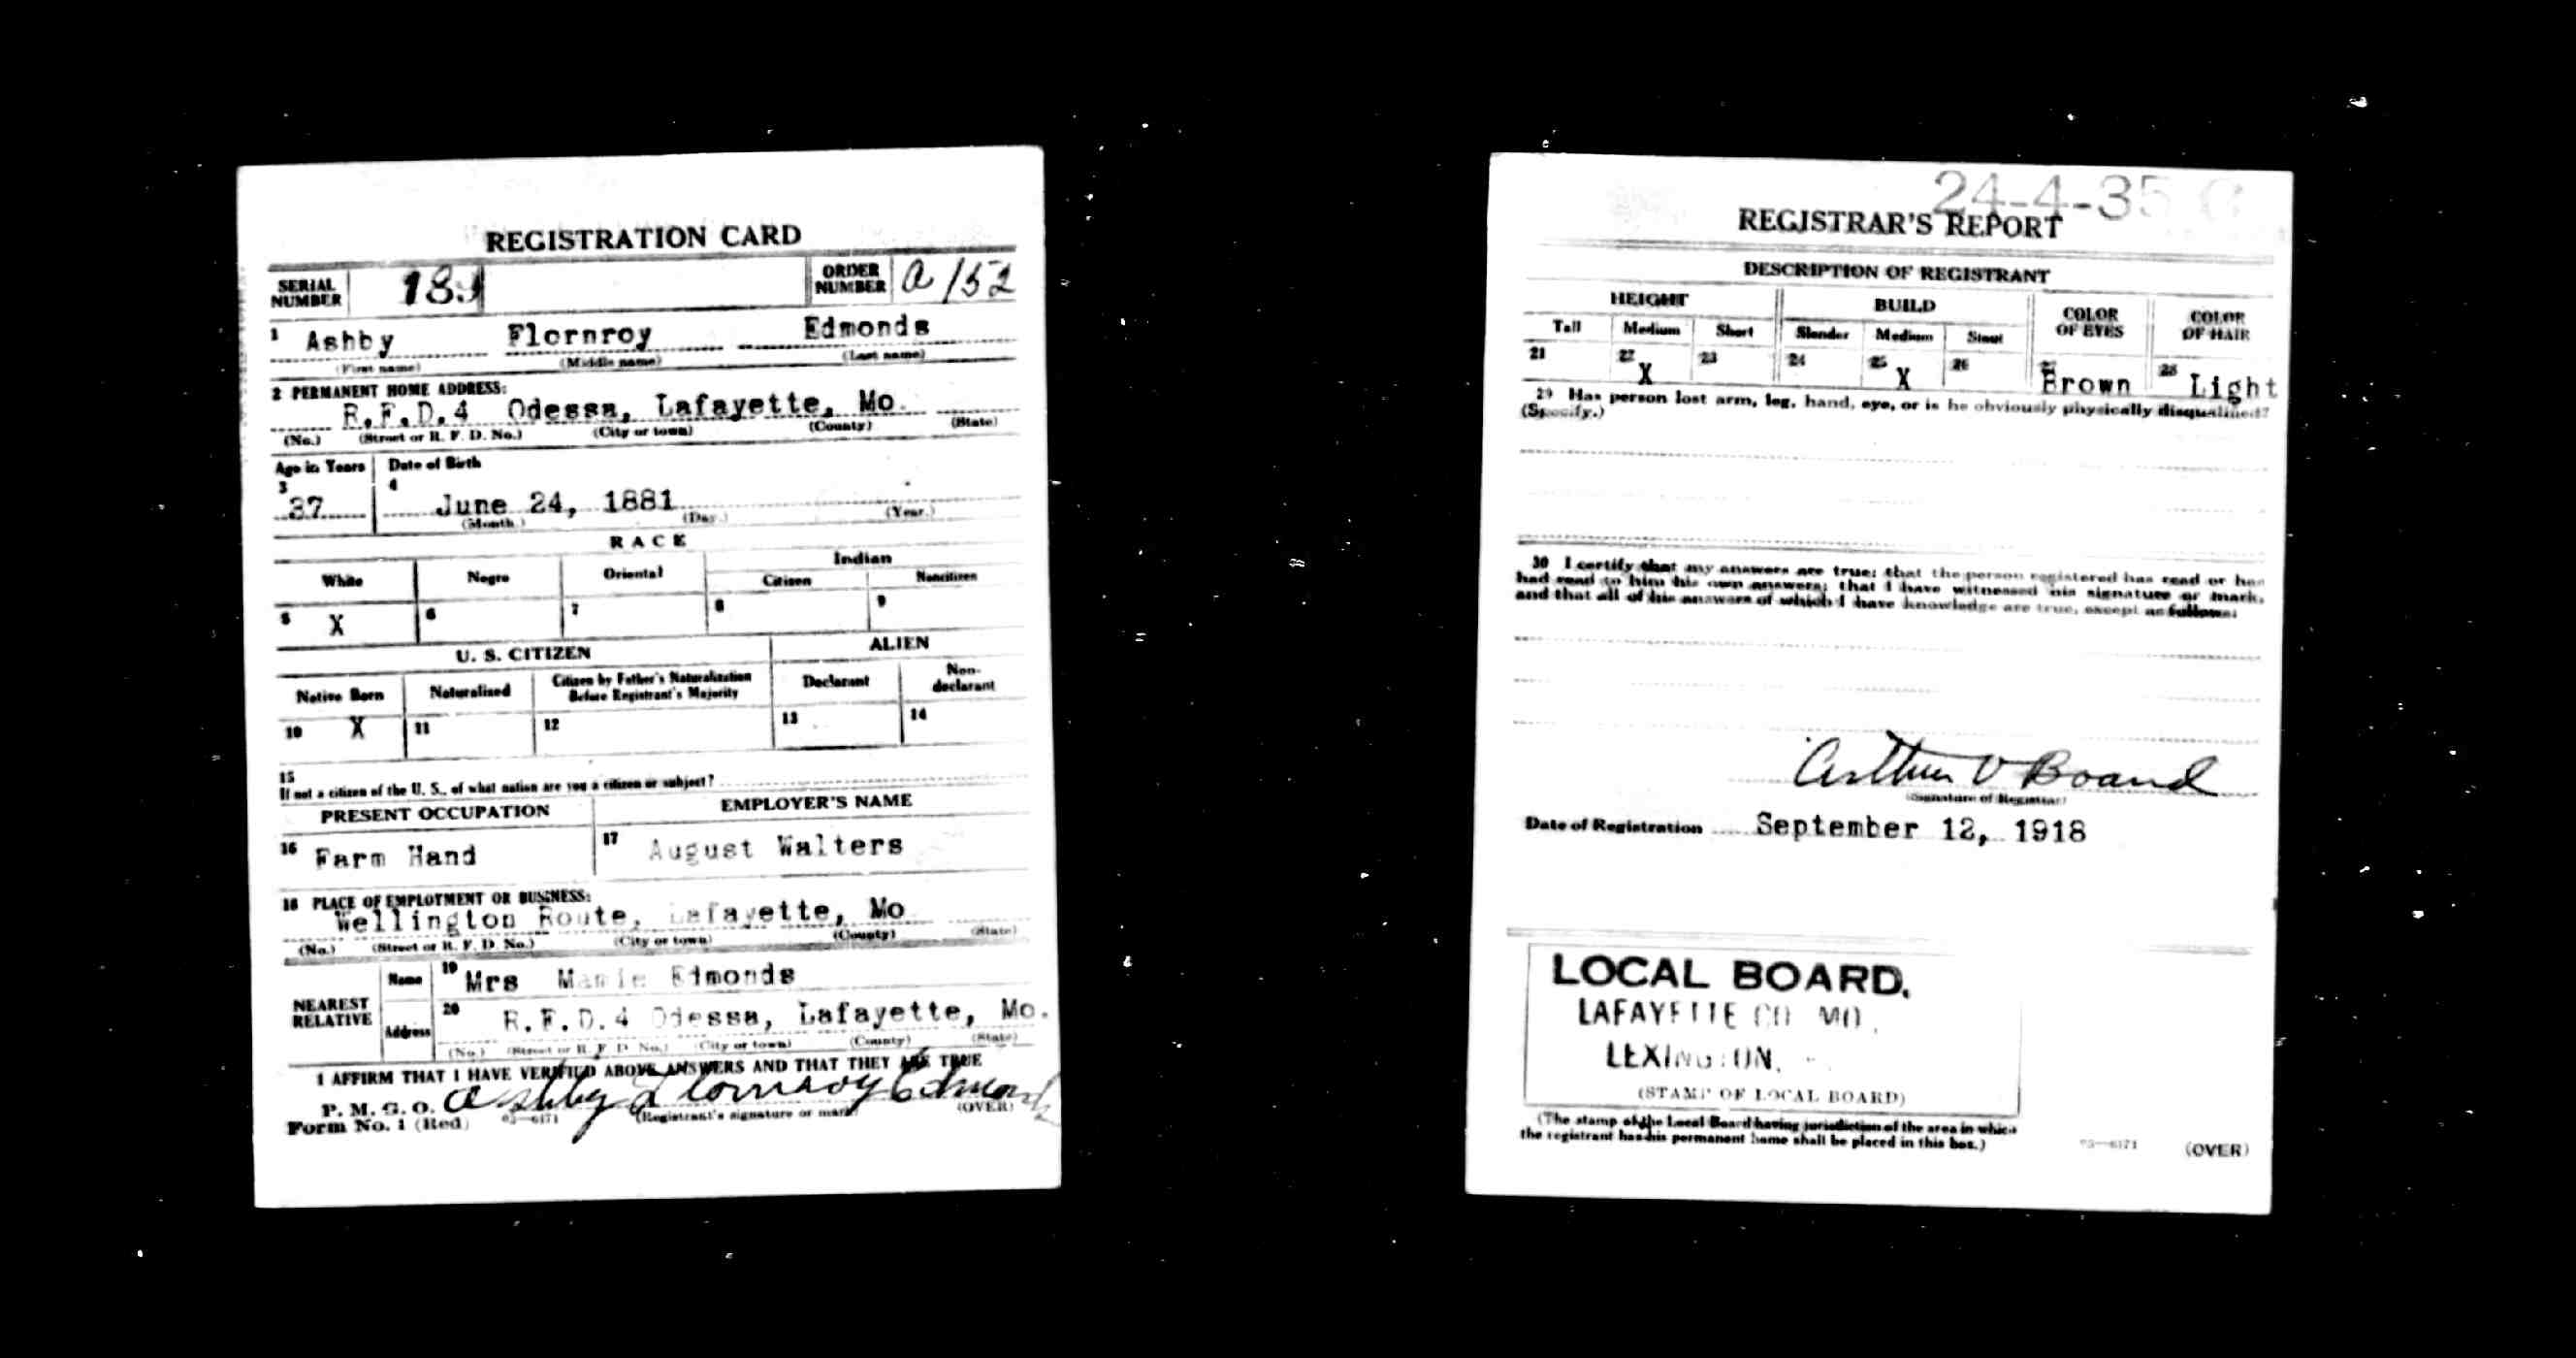 REGISTRATION CARD
SERIAL NUMBER 18 ORDER NUMBER a 152
1 Ashby Flornroy Edmonds
(First name) (Middle name) (Last name)
2 PERMANENT HOME ADDRESS:
R.F.D.4 Odessa, Lafayette, Mo.
(No.) (Street or R. F. D. No.) (City or town) (County) (State)
Age in Years Date of Birth
3 37 4 June 24, 1881
(Month.) (Day.) (Year.)
RACE
White Negro Oriental Indian
Citizen Noncitizen
5 X 6 7 8 9
U. S. CITIZEN ALIEN
Native Born Naturalized Citizen by Father's Naturalization Before Registrant's Majority Declarant Non-declarant
10 X 11 12 13 14
15
If not a citizen of the U. S., of what nation are you a citizen or subject?
PRESENT OCCUPATION EMPLOYER'S NAME
16 Farm Hand 17 August Walters
18 PLACE OF EMPLOYMENT OR BUSINESS:
Wellington Route, Lafayette, Mo
(No.) (Street or R. F. D. No.) (City or town) (County) (State)
NEAREST RELATIVE
Name 19 Mrs Mamie Edmonds
Address 20 R.F.D.4 Odessa, Lafayette, Mo.
(No.) (Street or R. F. D. No.) (City or town) (County) (State)
I AFFIRM THAT I HAVE VERIFIED ABOVE ANSWERS AND THAT THEY ARE TRUE
P. M. G. O.
Form No. 1 (Red) 03—6171 Ashby Flornroy Edmonds
(Registrant's signature or mark) (OVER)
24-4-35 C
REGISTRAR'S REPORT
DESCRIPTION OF REGISTRANT
HEIGHT BUILD COLOR OF EYES COLOR OF HAIR
Tall Medium Short Slender Medium Stout
21 22 X 23 24 25 X 26 27 Brown 28 Light
29 Has person lost arm, leg, hand, eye, or is he obviously physically disqualified?
(Specify.)
30 I certify that my answers are true; that the person registered has read or has
had read to him his own answers; that I have witnessed his signature or mark,
and that all of his answers of which I have knowledge are true, except as follows:
Arthur V Board
(Signature of Registrar)
Date of Registration September 12, 1918
LOCAL BOARD,
LAFAYETTE CO. MO.,
LEXINGTON,
(STAMP OF LOCAL BOARD)
(The stamp of the Local Board having jurisdiction of the area in which
the registrant has his permanent home shall be placed in this box.)
03—6171 (OVER)